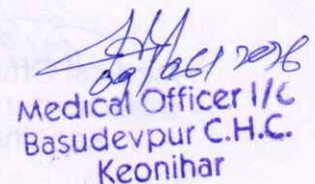 Medical Officer I/C
Basudevpur C.H.C.
Keonihar